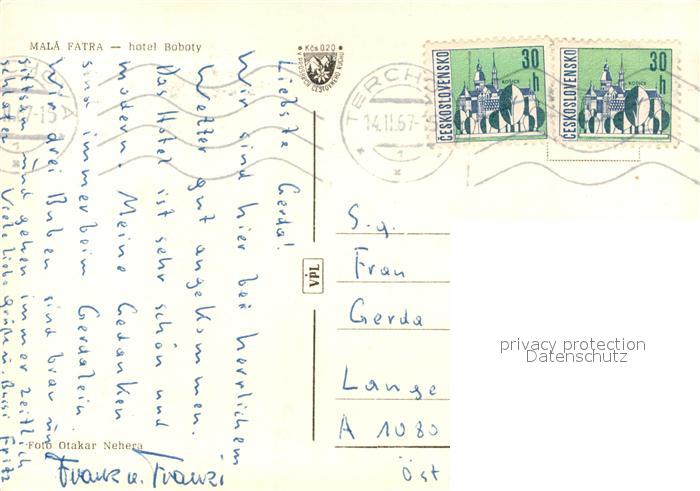 MALÁ FATRA — hotel Boboty
Kčs 0,20
ČESKOSLOVENSKO
30 h
KOŠICE
ČESKOSLOVENSKO
30 h
KOŠICE
TERCHOVÁ
14.II.67-15
1
Liebste Gerda!
Wir sind hier bei herrlichem
Wetter gut angekommen.
Das Hotel ist sehr schön und
modern. Meine Gedanken
sind immer beim Gerdalein.
Wir drei Buben sind brav im
sitzen und gehen immer zeitlich
schlafen. Viele liebe Grüße u. Bussi Fritz
Frank u. Franzi
Foto Otakar Nehera
VPL
S.g.
Frau
Gerda
Lange
A 1080
Öst
privacy protection
Datenschutz